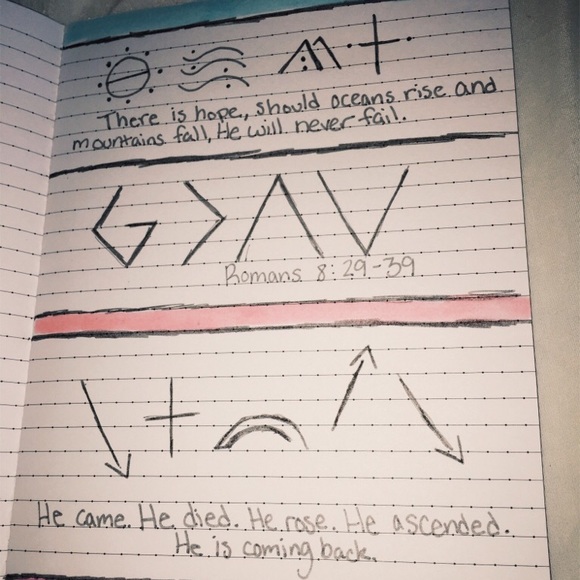 There is hope, should oceans rise and
mountains fall, He will never fail.
G > ∧ ∨
Romans 8:29-39
He came. He died. He rose. He ascended.
He is coming back.